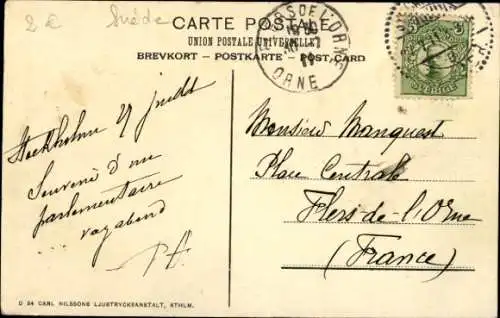 2 € Suède
CARTE POSTALE
UNION POSTALE UNIVERSELLE
BREVKORT — POSTKARTE — POST CARD
FLERS DE L'ORNE
ORNE
SVERIGE
Stockholm
Souvenir d'un
parlementaire
vagabond
Monsieur Manquest
Place Centrale
Flers-de-l'Orne
(France)
D 54 CARL NILSSONS LJUSTRYCKSANSTALT, STHLM.